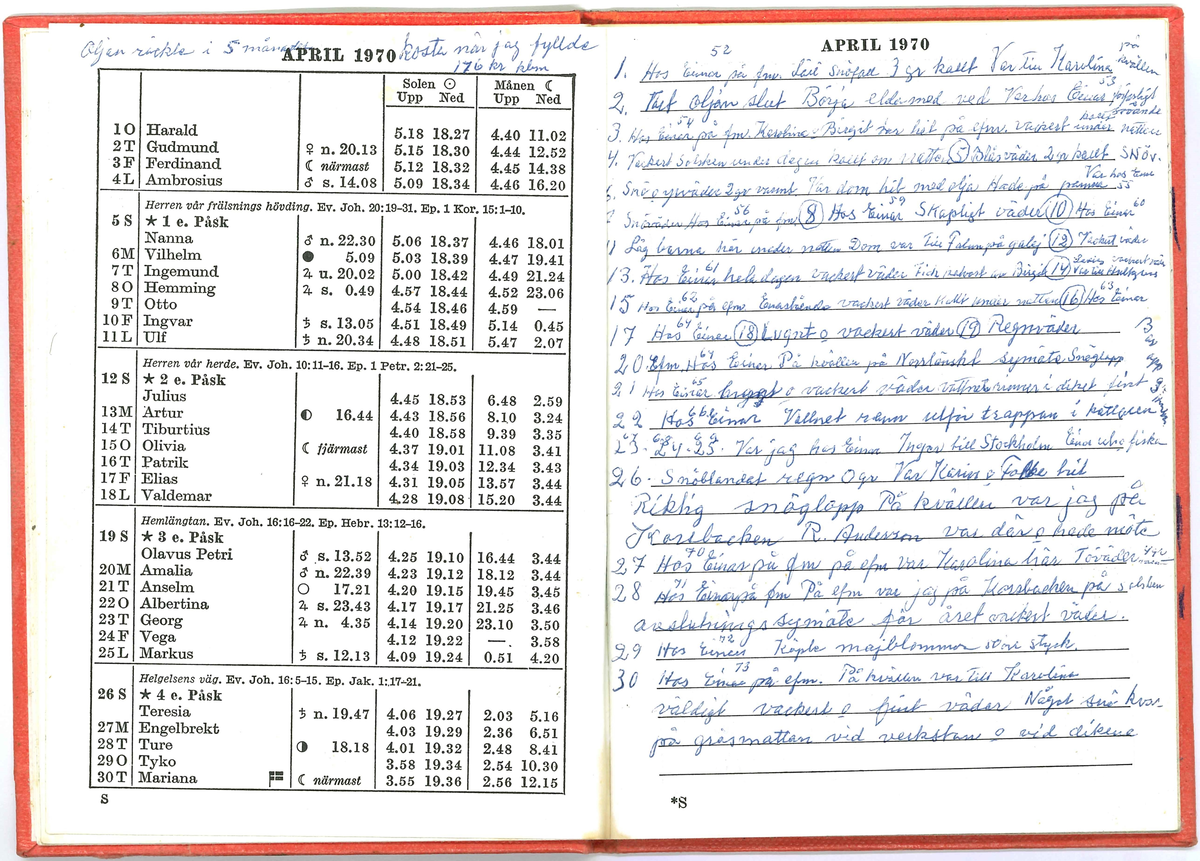 Oljan räckte i 5 månader kosta når jag fyllde
176 kr kbm
APRIL 1970
Solen ☉ Månen ☾
Upp Ned Upp Ned
1 O Harald 5.18 18.27 4.40 11.02
2 T Gudmund ♀ n. 20.13 5.15 18.30 4.44 12.52
3 F Ferdinand ☾ närmast 5.12 18.32 4.45 14.38
4 L Ambrosius ♂ s. 14.08 5.09 18.34 4.46 16.20
Herren vår frälsnings hövding. Ev. Joh. 20:19-31. Ep. 1 Kor. 15:1-10.
5 S ★ 1 e. Påsk
Nanna ♂ n. 22.30 5.06 18.37 4.46 18.01
6 M Vilhelm ● 5.09 5.03 18.39 4.47 19.41
7 T Ingemund ♃ u. 20.02 5.00 18.42 4.49 21.24
8 O Hemming ♃ s. 0.49 4.57 18.44 4.52 23.06
9 T Otto 4.54 18.46 4.59 —
10 F Ingvar ♄ s. 13.05 4.51 18.49 5.14 0.45
11 L Ulf ♄ n. 20.34 4.48 18.51 5.47 2.07
Herren vår herde. Ev. Joh. 10:11-16. Ep. 1 Petr. 2:21-25.
12 S ★ 2 e. Påsk
Julius 4.45 18.53 6.48 2.59
13 M Artur ◐ 16.44 4.43 18.56 8.10 3.24
14 T Tiburtius 4.40 18.58 9.39 3.35
15 O Olivia ☾ fjärmast 4.37 19.01 11.08 3.41
16 T Patrik 4.34 19.03 12.34 3.43
17 F Elias ♀ n. 21.18 4.31 19.05 13.57 3.44
18 L Valdemar 4.28 19.08 15.20 3.44
Hemlängtan. Ev. Joh. 16:16-22. Ep. Hebr. 13:12-16.
19 S ★ 3 e. Påsk
Olavus Petri ♂ s. 13.52 4.25 19.10 16.44 3.44
20 M Amalia ♂ n. 22.39 4.23 19.12 18.12 3.44
21 T Anselm ○ 17.21 4.20 19.15 19.45 3.45
22 O Albertina ♃ s. 23.43 4.17 19.17 21.25 3.46
23 T Georg ♃ n. 4.35 4.14 19.20 23.10 3.50
24 F Vega 4.12 19.22 —. 3.58
25 L Markus ♄ s. 12.13 4.09 19.24 0.51 4.20
Helgelsens väg. Ev. Joh. 16:5-15. Ep. Jak. 1:17-21.
26 S ★ 4 e. Påsk
Teresia ♄ n. 19.47 4.06 19.27 2.03 5.16
27 M Engelbrekt 4.03 19.29 2.36 6.51
28 T Ture ◑ 18.18 4.01 19.32 2.48 8.41
29 O Tyko 3.58 19.34 2.54 10.30
30 T Mariana ☾ närmast 3.55 19.36 2.56 12.15
S
APRIL 1970
52
1. Hos Einar på fm. Snöfall 3 gr kallt Var till Karolina på kvällen
53
2. oljan slut Börja elda med ved Var hos Einar
54
3 Hos Einar på fm Karolina o Birgit var hit på efm. vackert under natten
4. Vackert Solsken under dagen kallt om natten (5) Blåsväder 2 gr kallt snöv.
Snö o yrväder 2 gr varmt Var dom hit med olja Hade på Var hos Einar 55
56 59 60
7 Snöväder Hos Einar på fm (8) Hos Einar Skapligt väder (10) Hos Einar
11 Låg barna här under natten Dom var till Falun på (12) Vackert väder
61
13. Hos Einar hela dagen vackert väder Fick av Birgit (14) vackert väder Var till
62 63
15 Hos Einar på efm. Enastående vackert väder kallt under natten (16) Hos Einar
64
17 Hos Einar (18) Lugnt o vackert väder (19) Regnväder
67
20 Efm. Hos Einar På kvällen på Norrlänskt symöte Snöglopp
65
21 Hos Einar lugnt o vackert väder vattnet rinner i diket fint
66
22 Hos Einar Vattnet rann utför trappan i
68 69
23. 24. 25. Var jag hos Einar Ingvar till Stockholm Einar ut o fiska
26. Snöblandat regn 0 gr Var Karin o Folke hit
Riktig snöglopp På kvällen var jag på
Korsbacken R. Anderson var där o hade möte
70
27 Hos Einar på fm på efm var Karolina här Töväder
71
28 Hos Einar på fm På efm var jag på Korsbacken på
avslutnings symöte för året vackert väder.
72
29 Hos Einar Köpte majblommor
73
30 Hos Einar på efm. På kvällen var till Karolina
väldigt vackert o fint väder Något snö kvar
på gräsmattan vid verkstan o vid dikena
*S